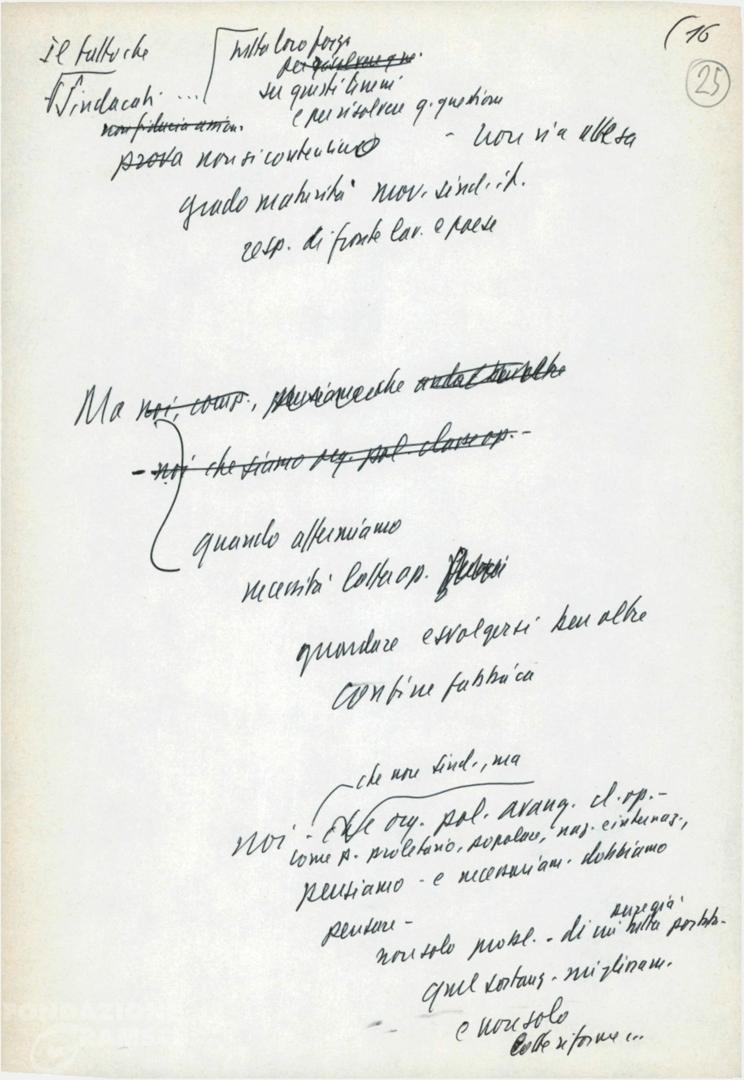 (16
25
Il fatto che
Sindacati ...
tutta loro forza
per risolvere que.
su questi temi
e per risolvere q. questioni
non fiducia
prova non si contentino - non sia attesa
grado maturità mov. sind. it.
resp. di fronte lav. e paese
Ma noi, comp., pensiamo che
- noi che siamo org. pol. classe op. -
quando affermiamo
necessità lotta op.
guardare e svolgersi ben oltre
confine fabbrica
che non sind., ma
noi - che org. pol. avang. cl. op. -
come p. proletario, popolare, naz. e internaz.,
pensiamo - e necessariam. dobbiamo
pensare -
non solo probl. - di cui
quel sostanz. miglioram.
e non solo
lotte riforme ...
FONDAZIONE